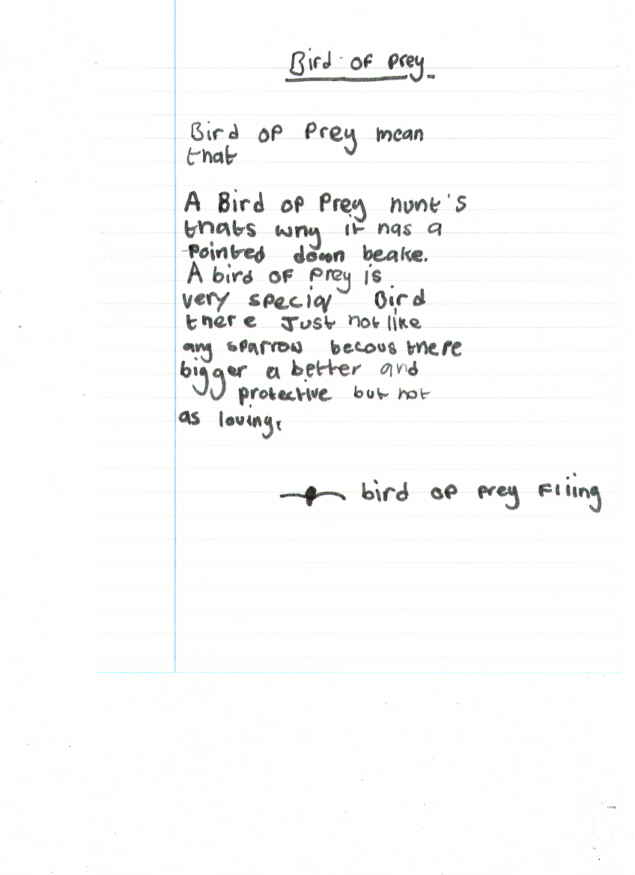 Bird of prey
Bird of Prey mean
that
A Bird of Prey hunt's
thats why it has a
Pointed down beake.
A bird of prey is
very special Bird
there Just not like
any sparrow becous there
bigger a better and
protective but not
as loving.
bird of prey Fliing